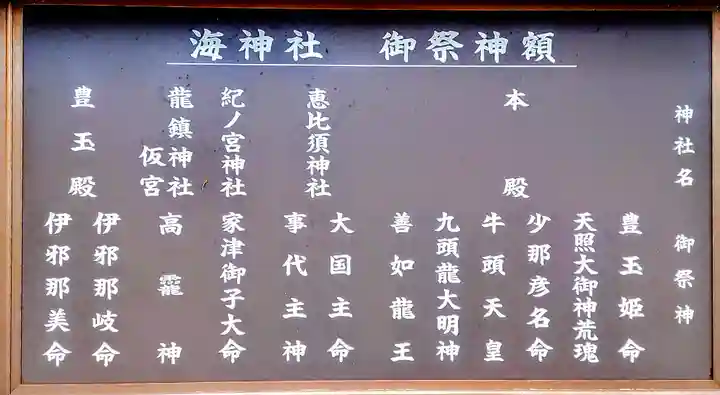 海神社 御祭神額
神社名 御祭神
本殿
豊玉姫命
天照大御神荒魂
少那彦名命
牛頭天皇
九頭龍大明神
善如龍王
恵比須神社
大国主命
事代主神
紀ノ宮神社
家津御子大命
龍鎮神社
仮宮
高龗神
豊玉殿
伊邪那岐命
伊邪那美命